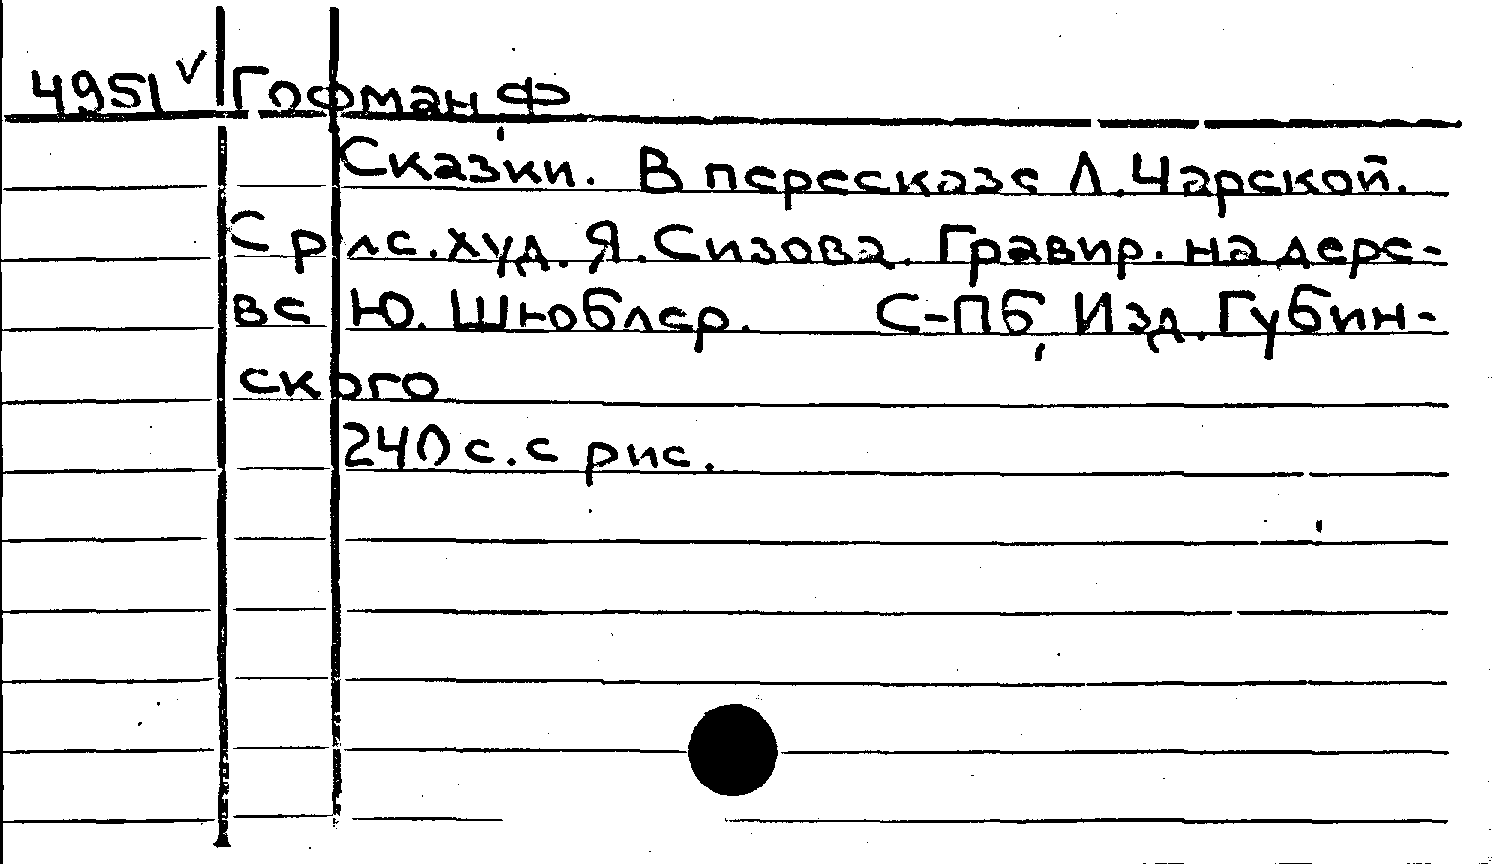 4951 √ Гофман Ф
Сказки. В пересказе Л. Чарской.
С рис. худ. Я. Сизова. Гравир. на дере-
ве Ю. Шюблер. С-Пб, Изд. Губин-
ского
240 с. с рис.